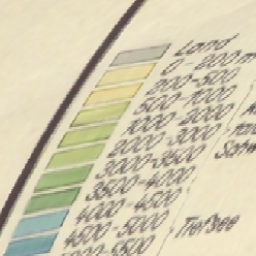 Land
0 - 200 m
200-500
500-1000
1000-2000
2000-3000
3000-3500
3500-4000
4000-4500
4500-5000
Tiefsee